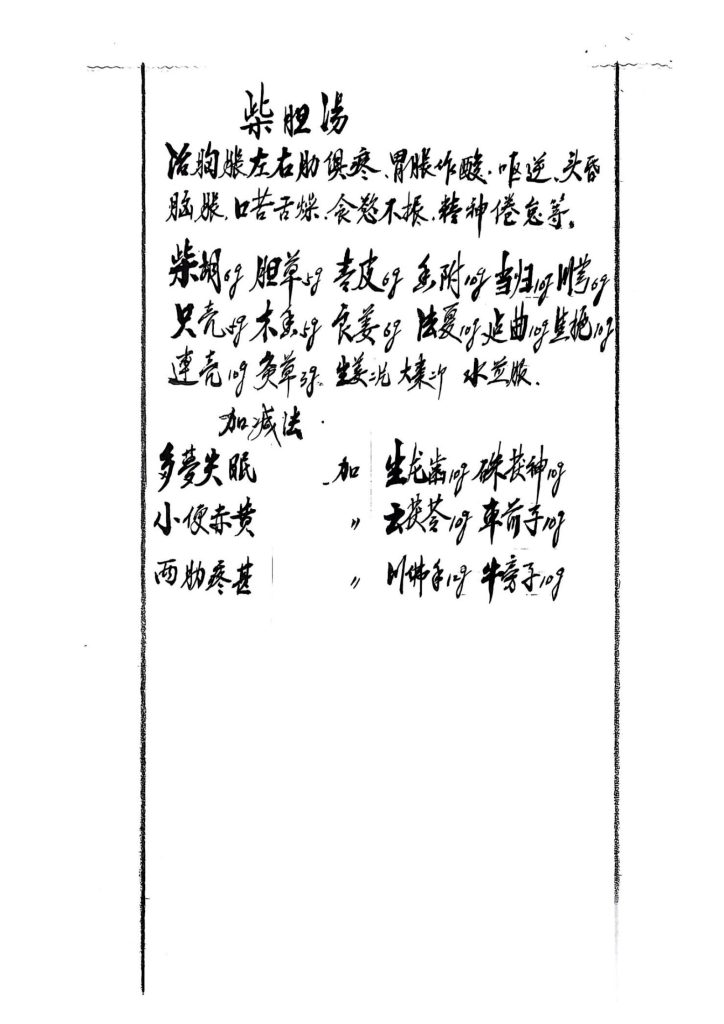 柴胆湯
治胸脹左右肋俱疼、胃脹炸酸、呕逆、头昏
脑脹、口苦舌燥、食慾不振、精神倦怠等。
柴胡6g 胆草5g 青皮6g 香附10g 当归10g 川芎6g
只壳5g 木香5g 良姜6g 法夏10g 建曲10g 焦栀10g
連壳10g 灸草3g 生姜三片 大棗三个 水煎服.
加减法
多夢失眠 加 生龙齒10g 硃茯神10g
小便赤黄 〃 云茯苓10g 車前子10g
两肋疼甚 〃 川佛手12g 牛蒡子10g